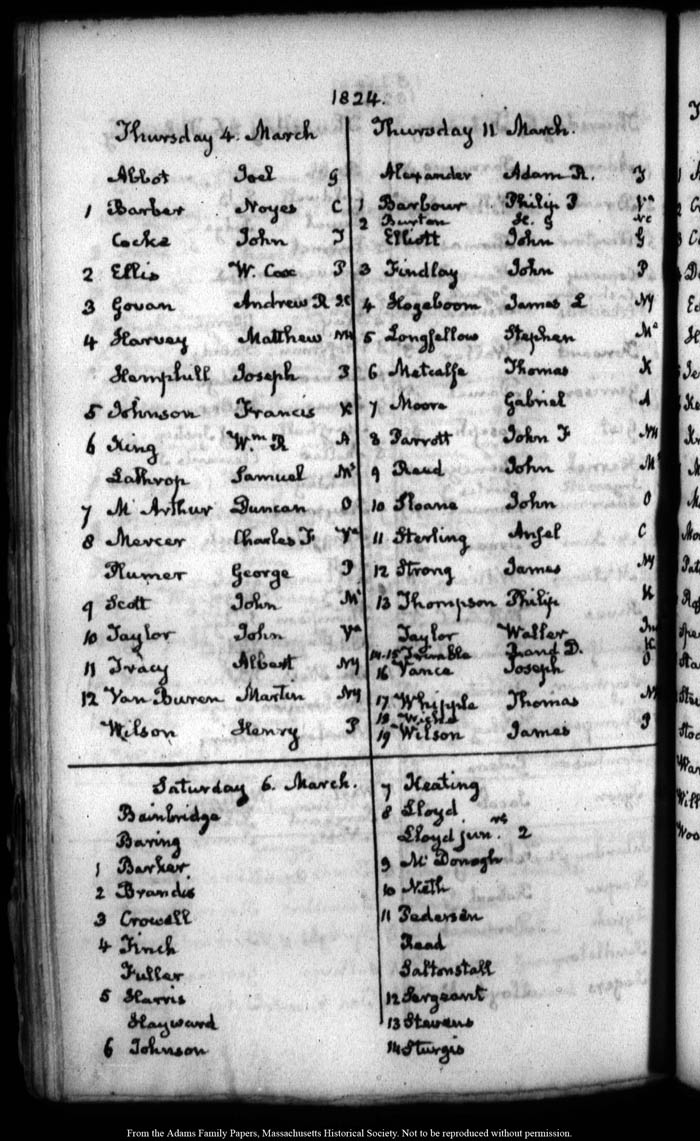 1824.
Thursday 4. March
Abbot Joel G
1 Barber Noyes C
Cocke John T
2 Ellis W. Cox P
3 Govan Andrew R SC
4 Harvey Matthew NH
Hemphill Joseph P
5 Johnson Francis K
6 King Wm. R A
Lathrop Samuel Ms
7 McArthur Duncan O
8 Mercer Charles F Va
Plumer George P
9 Scott John Mi
10 Taylor John Va
11 Tracy Albert NY
12 Van Buren Martin NY
Wilson Henry P
Thursday 11 March.
Alexander Adam R. T
1 Barbour Philip P Va
2 Burton H. G NC
Elliott John G
3 Findlay John P
4 Hogeboom James L NY
5 Longfellow Stephen Ma
6 Metcalfe Thomas K
7 Moore Gabriel A
8 Parrott John F NH
9 Reed John Ms
10 Sloane John O
11 Sterling Ansel C
12 Strong James NY
13 Thompson Philip K
Taylor Waller In
14-15 Trimble and D. K
16 Vance Joseph O
17 Whipple Thomas NH
18
19 Wilson James P
Saturday 6. March.
Bainbridge
Baring
1 Barker
2 Brandis
3 Crowell
4 Finch
Fuller
5 Harris
Hayward
6 Johnson
7 Keating
8 Lloyd
Lloyd jun. rs 2
9 McDonogh
10 Neth
11 Pedersen
Read
Saltonstall
12 Sergeant
13 Stevens
14 Sturgis
From the Adams Family Papers, Massachusetts Historical Society. Not to be reproduced without permission.